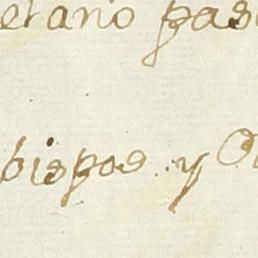 etano pas
bispos y O